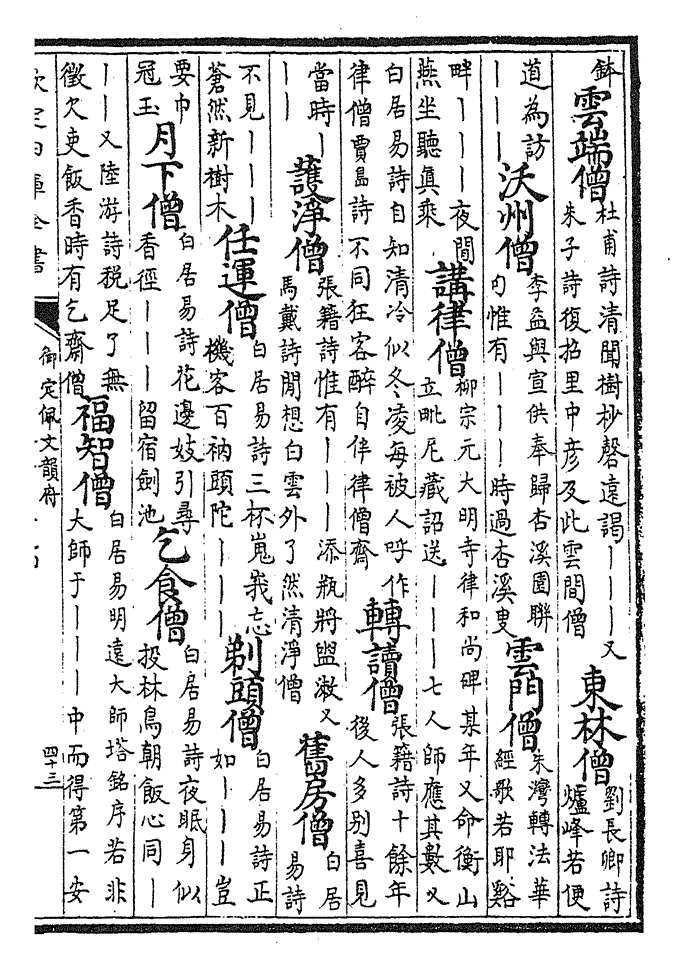 鉢
雲端僧
杜甫詩清聞樹杪磬遠謁｜｜｜又
朱子詩復招里中彦及此雲間僧
東林僧
劉長卿詩
爐峰若便
道為訪
｜｜｜
沃州僧
李益與宣供奉歸杏溪園聯
句惟有｜｜｜時過杏溪叟
雲門僧
朱灣轉法華
經歌若耶谿
畔｜｜｜夜間
燕坐聽真乘
講律僧
柳宗元大明寺律和尚碑某年又命衡山
立毗尼藏詔送｜｜｜七人師應其數又
白居易詩自知清冷似冬凌每被人呼作
律僧賈島詩不同狂客醉自伴律僧齋
轉讀僧
張籍詩十餘年
後人多别喜見
當時｜
｜｜
護淨僧
張籍詩惟有｜｜｜添瓶將盥漱又
馬戴詩閒想白雲外了然清淨僧
舊房僧
白居
易詩
不見｜｜｜
蒼然新樹木
任運僧
白居易詩三杯嵬峩忘
機客百衲頭陀｜｜｜
剃頭僧
白居易詩正
如｜｜｜豈
要巾
冠玉
月下僧
白居易詩花邊妓引尋
香徑｜｜｜留宿劍池
乞食僧
白居易詩夜眠身似
投林鳥朝飯心同｜
｜｜又陸游詩税足了無
徵欠吏飯香時有乞齋僧
福智僧
白居易明遠大師塔銘序若非
大師于｜｜｜中而得第一安
欽定四庫全書
御定佩文韻府
四十三